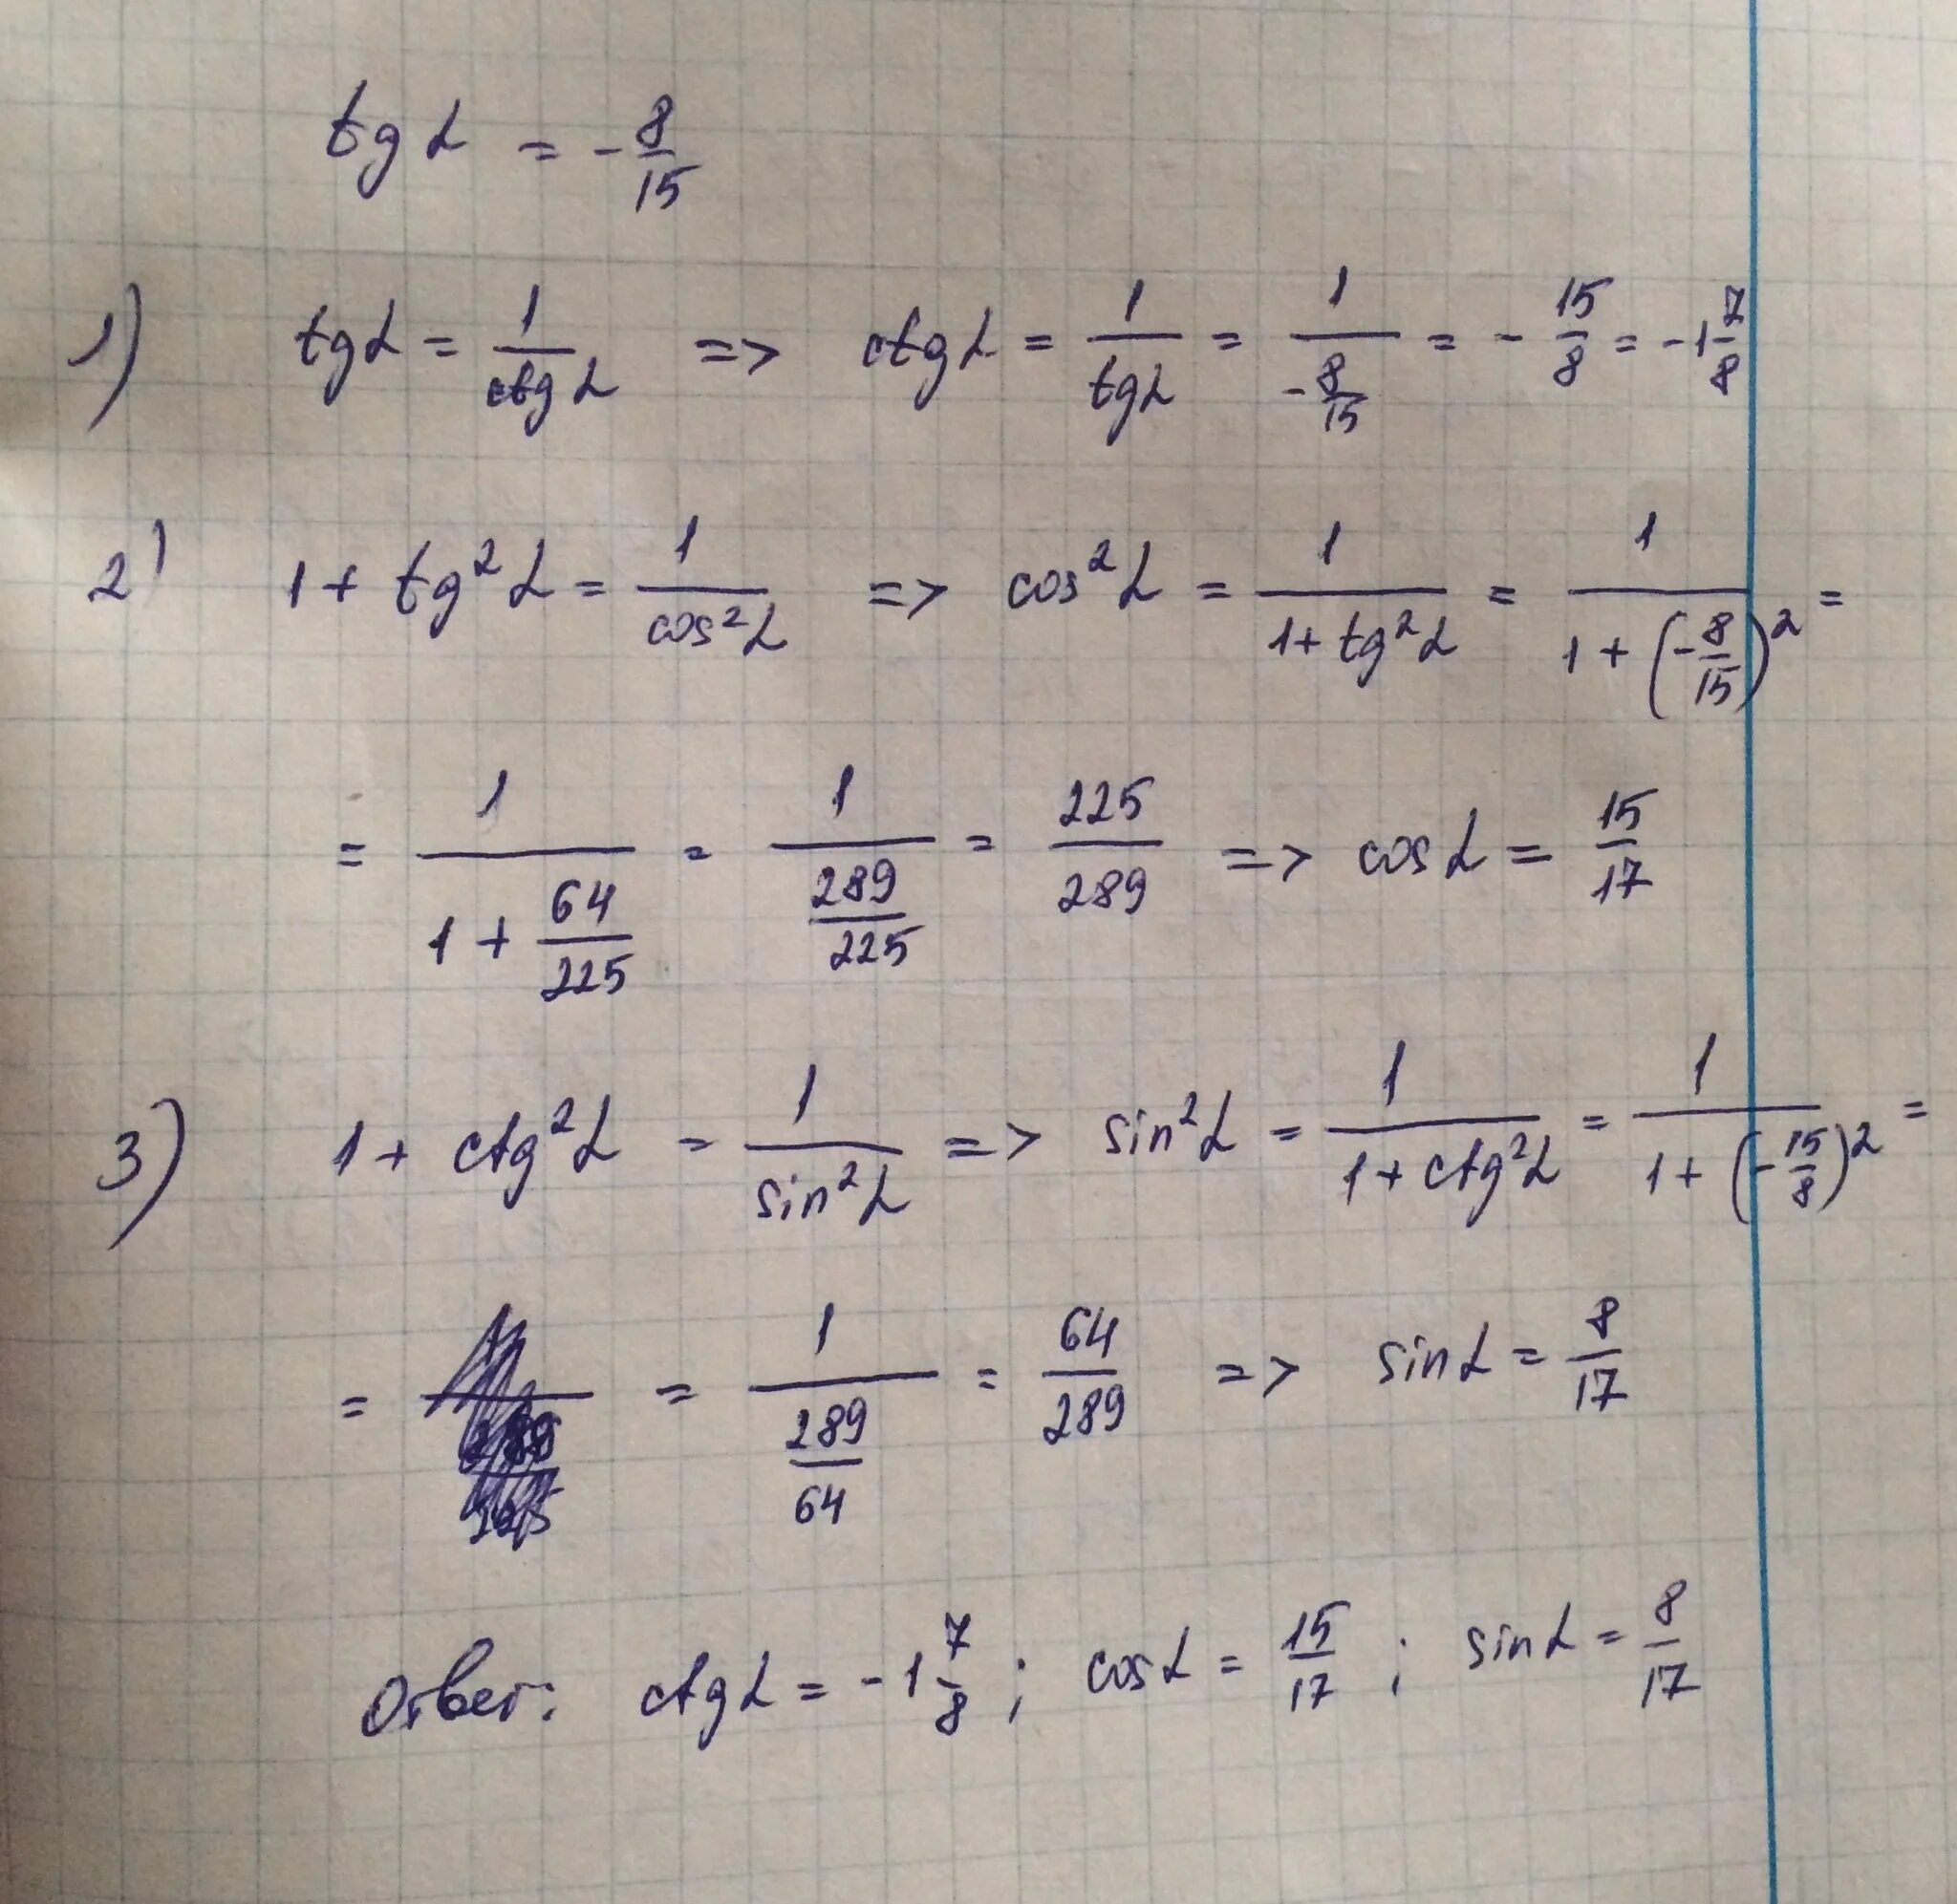 tg α = -8/15
1) tg α = 1/ctg α => ctg α = 1/tg α = 1/(-8/15) = -15/8 = -1 7/8
2) 1 + tg² α = 1/cos² α => cos² α = 1/(1 + tg² α) = 1/(1 + (-8/15)²) =
= 1/(1 + 64/225) = 1/(289/225) = 225/289 => cos α = 15/17
3) 1 + ctg² α = 1/sin² α => sin² α = 1/(1 + ctg² α) = 1/(1 + (-15/8)²) =
= = 1/(289/64) = 64/289 => sin α = 8/17
Ответ: ctg α = -1 7/8 ; cos α = 15/17 ; sin α = 8/17